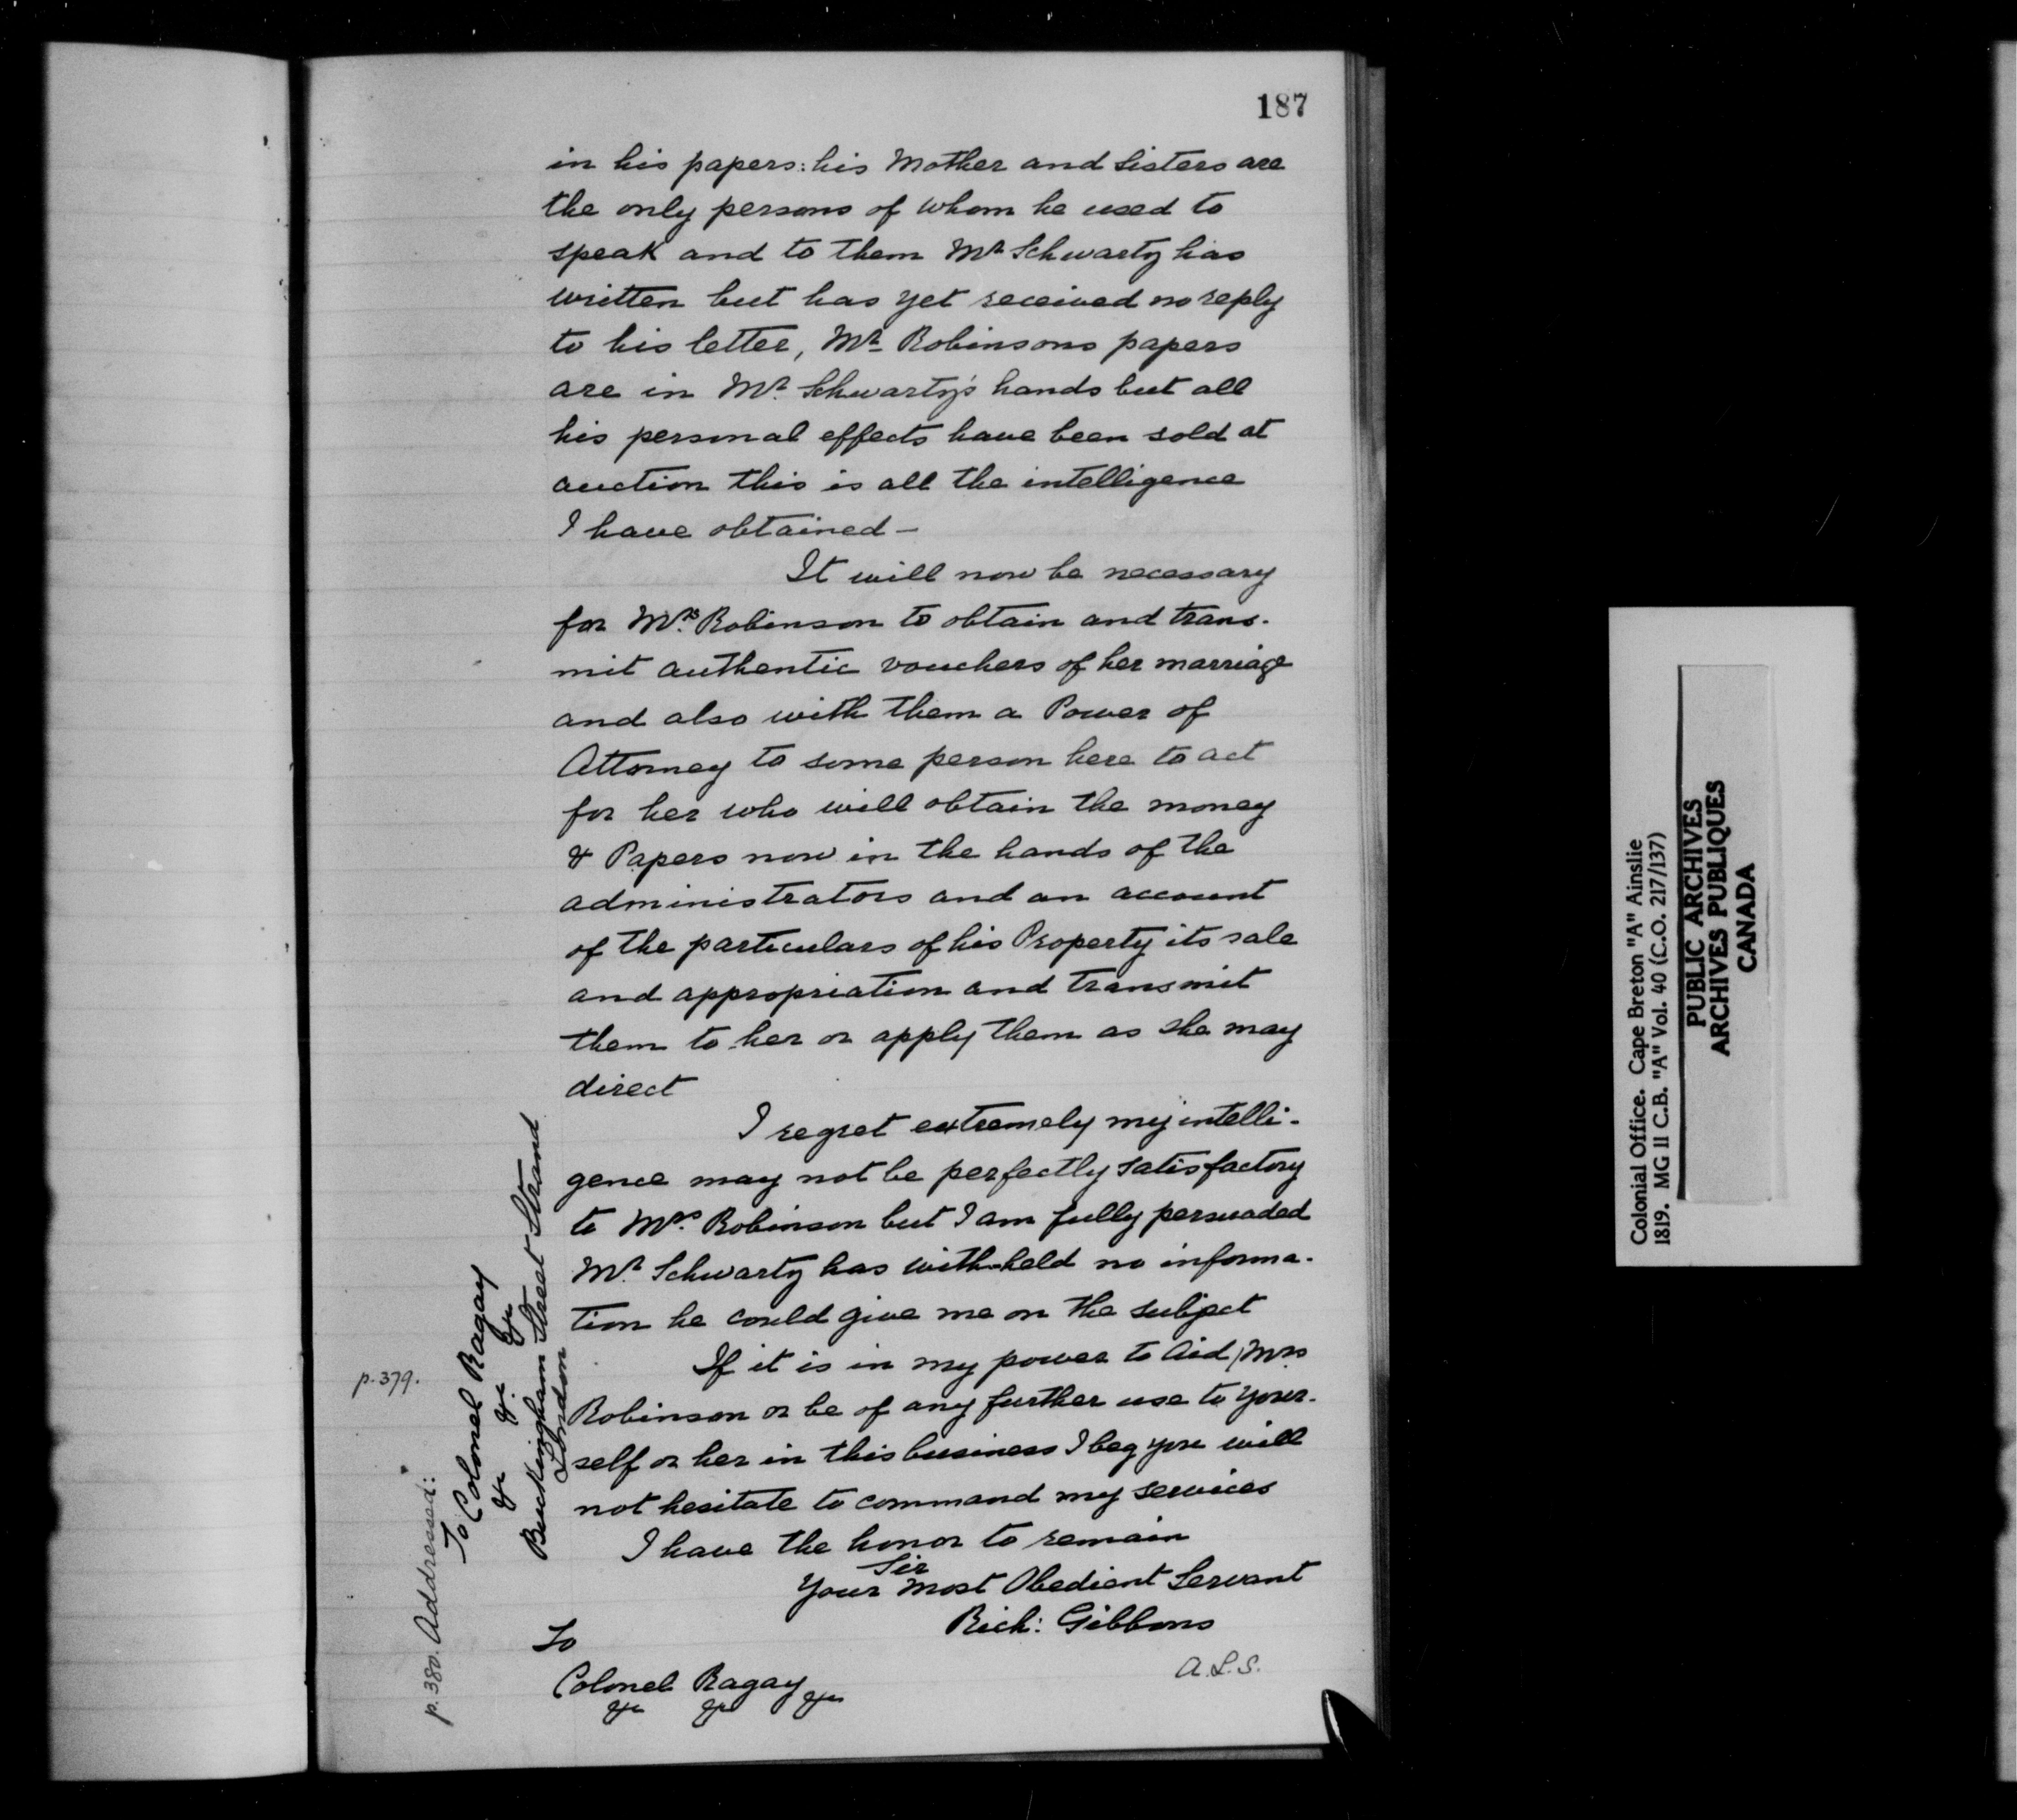 187
in his papers: his Mother and Sisters are
the only persons of whom he used to
speak and to them Mr Schwartz has
written but has yet received no reply
to his letter, Mr Robinsons papers
are in Mr. Schwartz's hands but all
his personal effects have been sold at
auction this is all the intelligence
I have obtained —
It will now be necessary
for Mrs. Robinson to obtain and trans-
mit authentic vouchers of her marriage
and also with them a Power of
Attorney to some person here to act
for her who will obtain the money
& Papers now in the hands of the
administrators and an account
of the particulars of his Property its sale
and appropriation and transmit
them to her or apply them as she may
direct
I regret extremely my intelli-
gence may not be perfectly satisfactory
to Mrs. Robinson but I am fully persuaded
Mr. Schwartz has with-held no informa-
tion he could give me on the subject
If it is in my power to Aid Mrs
Robinson or be of any further use to your-
self or her in this business I beg you will
not hesitate to command my services
I have the honor to remain
Sir
Your most Obedient Servant
Rich: Gibbons
A.L.S.
To
Colonel Ragay
&c &c &c
p. 379.
p. 380. Addressed:
To Colonel Ragay
&c &c &c
Buckingham Street Strand
London
Colonial Office. Cape Breton "A" Ainslie
1819. MG 11 C.B. "A" Vol. 40 (C.O. 217/137)
PUBLIC ARCHIVES
ARCHIVES PUBLIQUES
CANADA